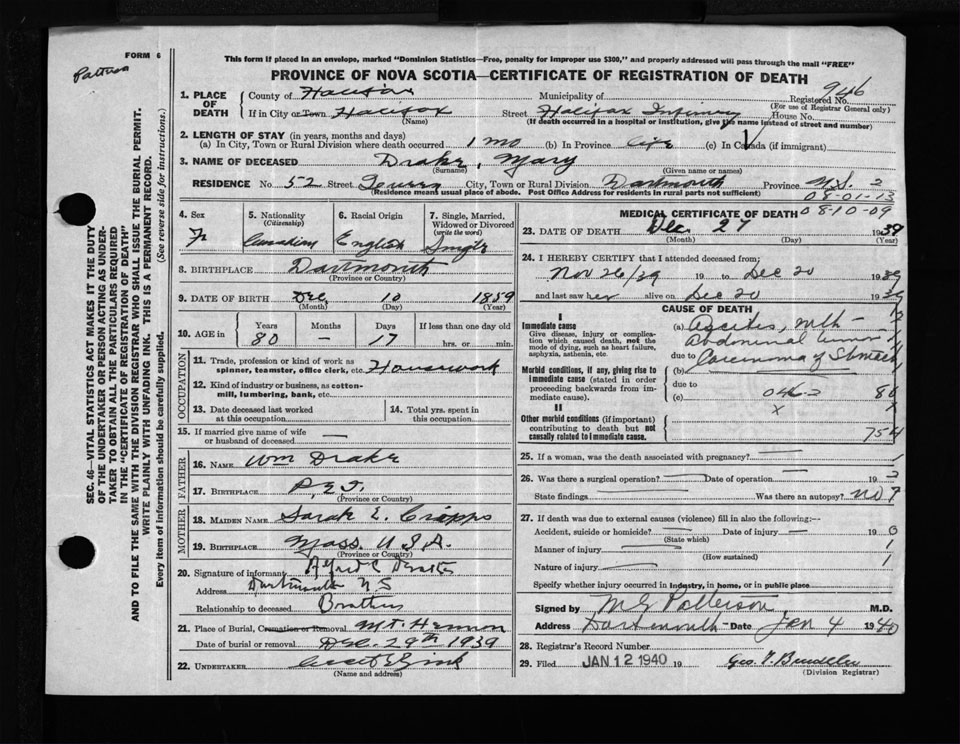 FORM 6
This form if placed in an envelope, marked "Dominion Statistics—Free, penalty for improper use $300," and properly addressed will pass through the mail "FREE"
PROVINCE OF NOVA SCOTIA—CERTIFICATE OF REGISTRATION OF DEATH
946
1. PLACE OF DEATH
County of Halifax Municipality of Registered No.
(For use of Registrar General only)
If in City or Town Halifax Street Halifax Infirmary House No.
(Name) (If death occurred in a hospital or institution, give the name instead of street and number)
2. LENGTH OF STAY (in years, months and days)
(a) In City, Town or Rural Division where death occurred 1 mo (b) In Province Life (c) In Canada (if immigrant)
3. NAME OF DECEASED Drake, Mary
(Surname) (Given name or names)
RESIDENCE No. 52 Street City, Town or Rural Division Dartmouth Province N.S. 2
(Residence means usual place of abode. Post Office Address for residents in rural parts not sufficient)
08-01-13
SEC. 46—VITAL STATISTICS ACT MAKES IT THE DUTY
OF THE UNDERTAKER OR PERSON ACTING AS UNDER-
TAKER TO OBTAIN ALL THE PARTICULARS REQUIRED
IN THE "CERTIFICATE OF REGISTRATION OF DEATH"
AND TO FILE THE SAME WITH THE DIVISION REGISTRAR WHO SHALL ISSUE THE BURIAL PERMIT.
WRITE PLAINLY WITH UNFADING INK. THIS IS A PERMANENT RECORD.
Every item of information should be carefully supplied. (See reverse side for instructions.)
4. Sex 5. Nationality (Citizenship) 6. Racial Origin 7. Single, Married, Widowed or Divorced (write the word)
F Canadian English Single
8. BIRTHPLACE Dartmouth
(Province or Country)
9. DATE OF BIRTH Dec. 10 1859
(Month) (Day) (Year)
10. AGE in Years Months Days If less than one day old
80 — 17 hrs. or min.
OCCUPATION
11. Trade, profession or kind of work as spinner, teamster, office clerk, etc. Housework
12. Kind of industry or business, as cotton-mill, lumbering, bank, etc.
13. Date deceased last worked at this occupation 14. Total yrs. spent in this occupation
15. If married give name of wife or husband of deceased —
FATHER
16. NAME Wm Drake
17. BIRTHPLACE P.E.I.
(Province or Country)
MOTHER
18. MAIDEN NAME Sarah E. Cripps
19. BIRTHPLACE Mass. U.S.A.
(Province or Country)
20. Signature of informant Alfred C Drake
Address Dartmouth N.S
Relationship to deceased Brother
21. Place of Burial, Cremation or Removal Mt. Hermon
Date of burial or removal Dec. 29th 1939
22. UNDERTAKER
(Name and address)
MEDICAL CERTIFICATE OF DEATH 08-10-09
23. DATE OF DEATH Dec. 27 1939
(Month) (Day) (Year)
24. I HEREBY CERTIFY that I attended deceased from:
Nov 26/39 19 to Dec 20 1939
and last saw her alive on Dec 20 1939
CAUSE OF DEATH
I
Immediate cause
Give disease, injury or complication which caused death, not the mode of dying, such as heart failure, asphyxia, asthenia, etc.
(a) Ascites, with
Abdominal tumor
due to Carcinoma of Stomach
Morbid conditions, if any, giving rise to immediate cause (stated in order proceeding backwards from immediate cause).
(b)
due to
(c) 046-2 80
x
II
Other morbid conditions (if important) contributing to death but not causally related to immediate cause.
754
25. If a woman, was the death associated with pregnancy? — 1
26. Was there a surgical operation? — Date of operation — 19 2
State findings — Was there an autopsy? no 7
27. If death was due to external causes (violence) fill in also the following:—
Accident, suicide or homicide? — Date of injury — 19 0
(State which)
Manner of injury 1
(How sustained)
Nature of injury 1
Specify whether injury occurred in industry, in home, or in public place
Signed by M G Patterson, M.D.
Address Dartmouth Date Jan 4 1940
28. Registrar's Record Number
29. Filed JAN 12 1940 19
(Division Registrar)